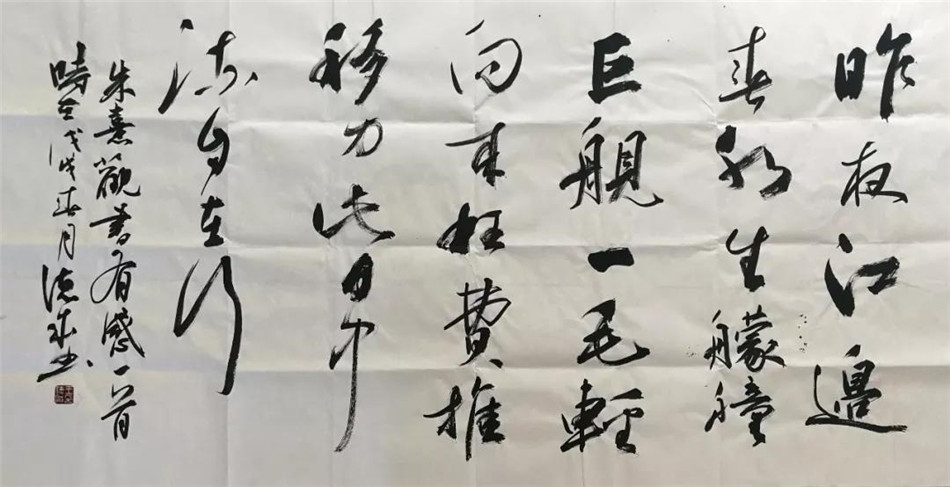 昨夜江邊
春水生艨艟
巨舰一毛輕
向来枉費推
移力此日中
流自在行
朱熹觀書有感一首
時在戊戌春月德书